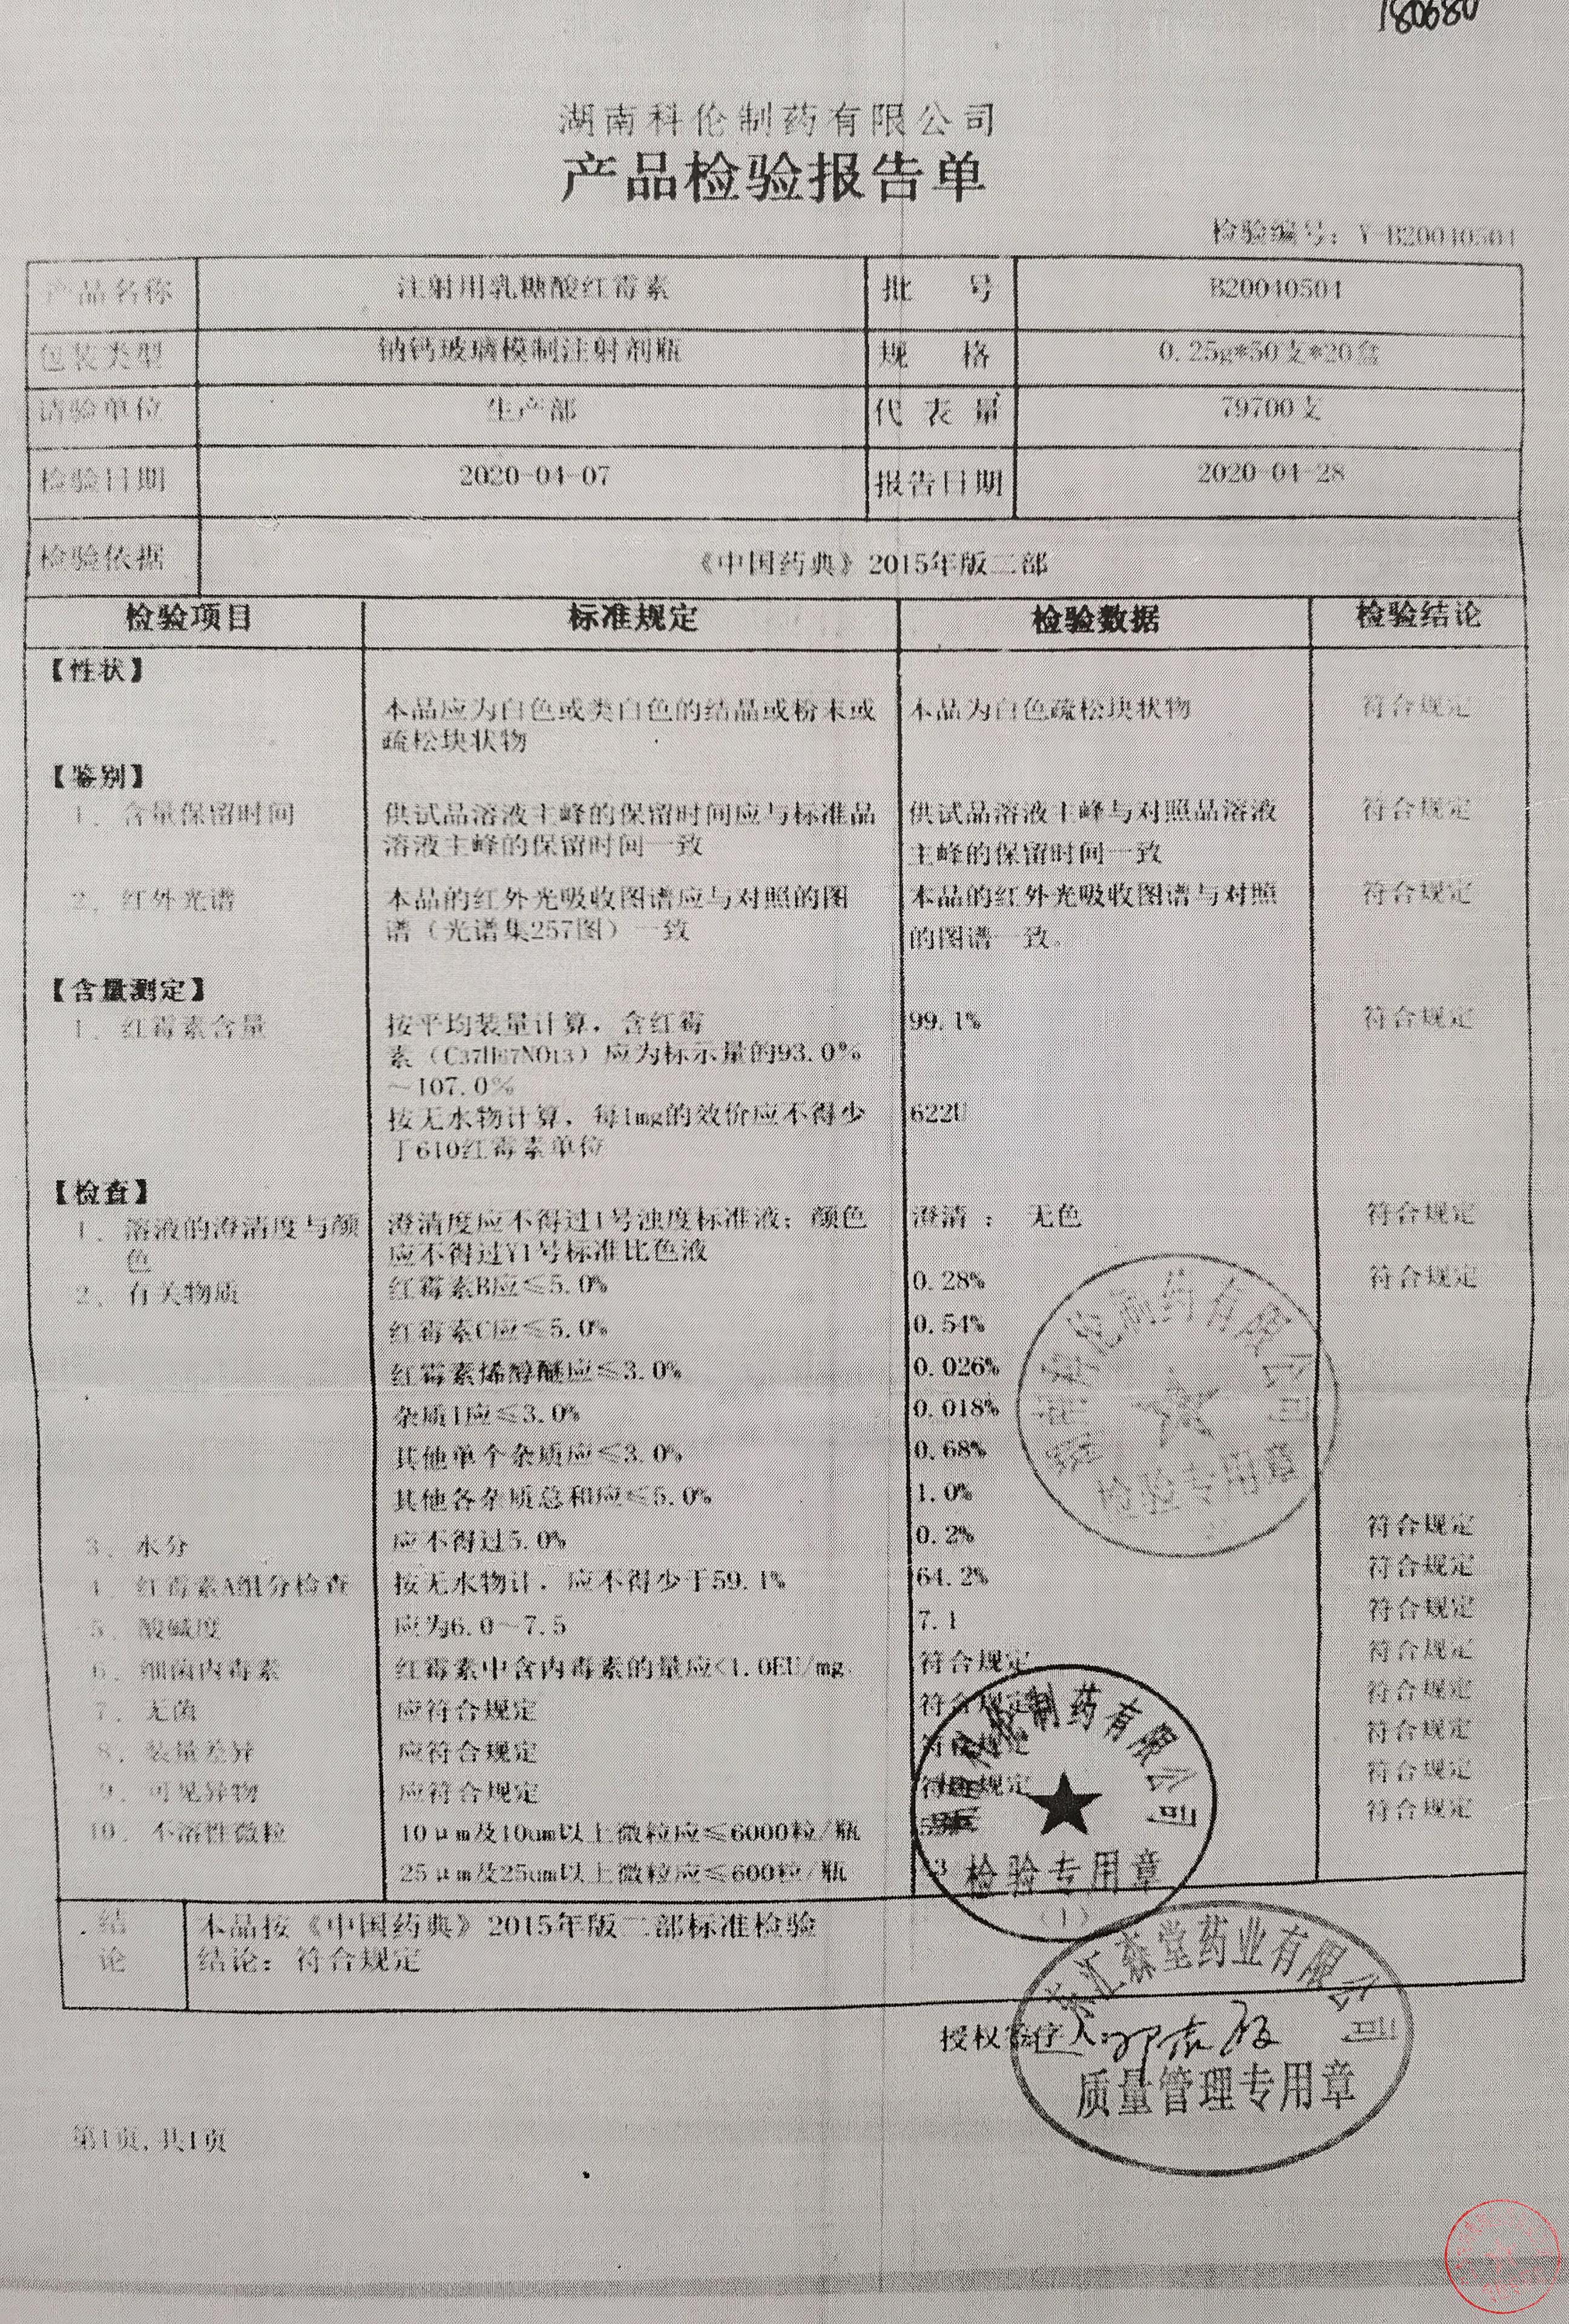 180680
湖南科伦制药有限公司
产品检验报告单
检验编号：Y-B20040504
产品名称 注射用乳糖酸红霉素 批 号 B20040504
包装类型 钠钙玻璃模制注射剂瓶 规 格 0.25g*50支*20盒
请验单位 生产部 代 表 量 79700支
检验日期 2020-04-07 报告日期 2020-04-28
检验依据 《中国药典》2015年版二部
检验项目 标准规定 检验数据 检验结论
【性状】
本品应为白色或类白色的结晶或粉末或 本品为白色疏松块状物 符合规定
疏松块状物
【鉴别】
1、含量保留时间 供试品溶液主峰的保留时间应与标准品 供试品溶液主峰与对照品溶液 符合规定
溶液主峰的保留时间一致 主峰的保留时间一致
2、红外光谱 本品的红外光吸收图谱应与对照的图 本品的红外光吸收图谱与对照 符合规定
谱（光谱集257图）一致 的图谱一致。
【含量测定】
1、红霉素含量 按平均装量计算，含红霉 99.1% 符合规定
素（C37H67NO13）应为标示量的93.0%
～107.0%
按无水物计算，每1mg的效价应不得少 622U
于610红霉素单位
【检查】
1、溶液的澄清度与颜 澄清度应不得过1号浊度标准液；颜色 澄清 ； 无色 符合规定
色 应不得过Y1号标准比色液
2、有关物质 红霉素B应≤5.0% 0.28% 符合规定
红霉素C应≤5.0% 0.54%
红霉素烯醇醚应≤3.0% 0.026%
杂质1应≤3.0% 0.018%
其他单个杂质应≤3.0% 0.68%
其他各杂质总和应≤5.0% 1.0%
3、水分 应不得过5.0% 0.2% 符合规定
4、红霉素A组分检查 按无水物计，应不得少于59.1% 64.2% 符合规定
5、酸碱度 应为6.0～7.5 7.1 符合规定
6、细菌内毒素 红霉素中含内毒素的量应<1.0EU/mg 符合规定 符合规定
7、无菌 应符合规定 符合规定 符合规定
8、装量差异 应符合规定 符合规定 符合规定
9、可见异物 应符合规定 符合规定 符合规定
10、不溶性微粒 10μm及10um以上微粒应≤6000粒/瓶 符合规定
25μm及25um以上微粒应≤600粒/瓶
科伦制药有限公司
检验专用章
科伦制药有限公司
检验专用章
（1）
结论 本品按《中国药典》2015年版二部标准检验
结论：符合规定
授权签字人：
汇森堂药业有限公司
质量管理专用章
第1页,共1页